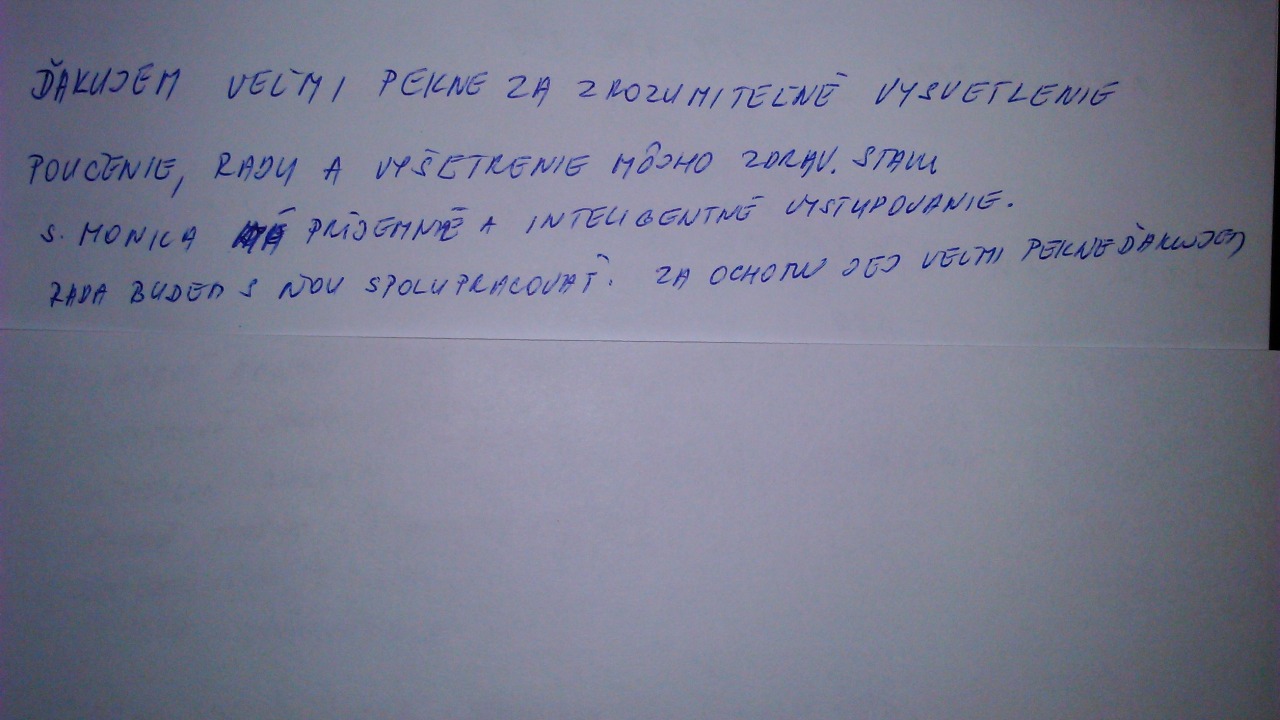 ĎAKUJEM VEĽMI PEKNE ZA ZROZUMITEĽNÉ VYSVETLENIE
POUČENIE, RADY A VYŠETRENIE MÔJHO ZDRAV. STAVU
S. MONIKA MÁ PRÍJEMNÉ A INTELIGENTNÉ VYSTUPOVANIE.
RADA BUDEM S ŇOU SPOLUPRACOVAŤ. ZA OCHOTU JEJ VEĽMI PEKNE ĎAKUJEM